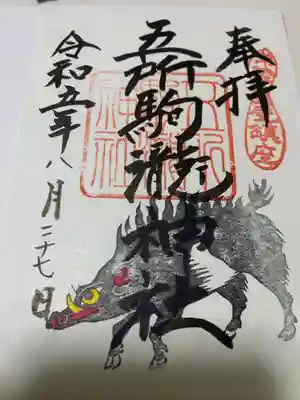 奉拝
五所駒瀧神社
令和五年八月二十七日